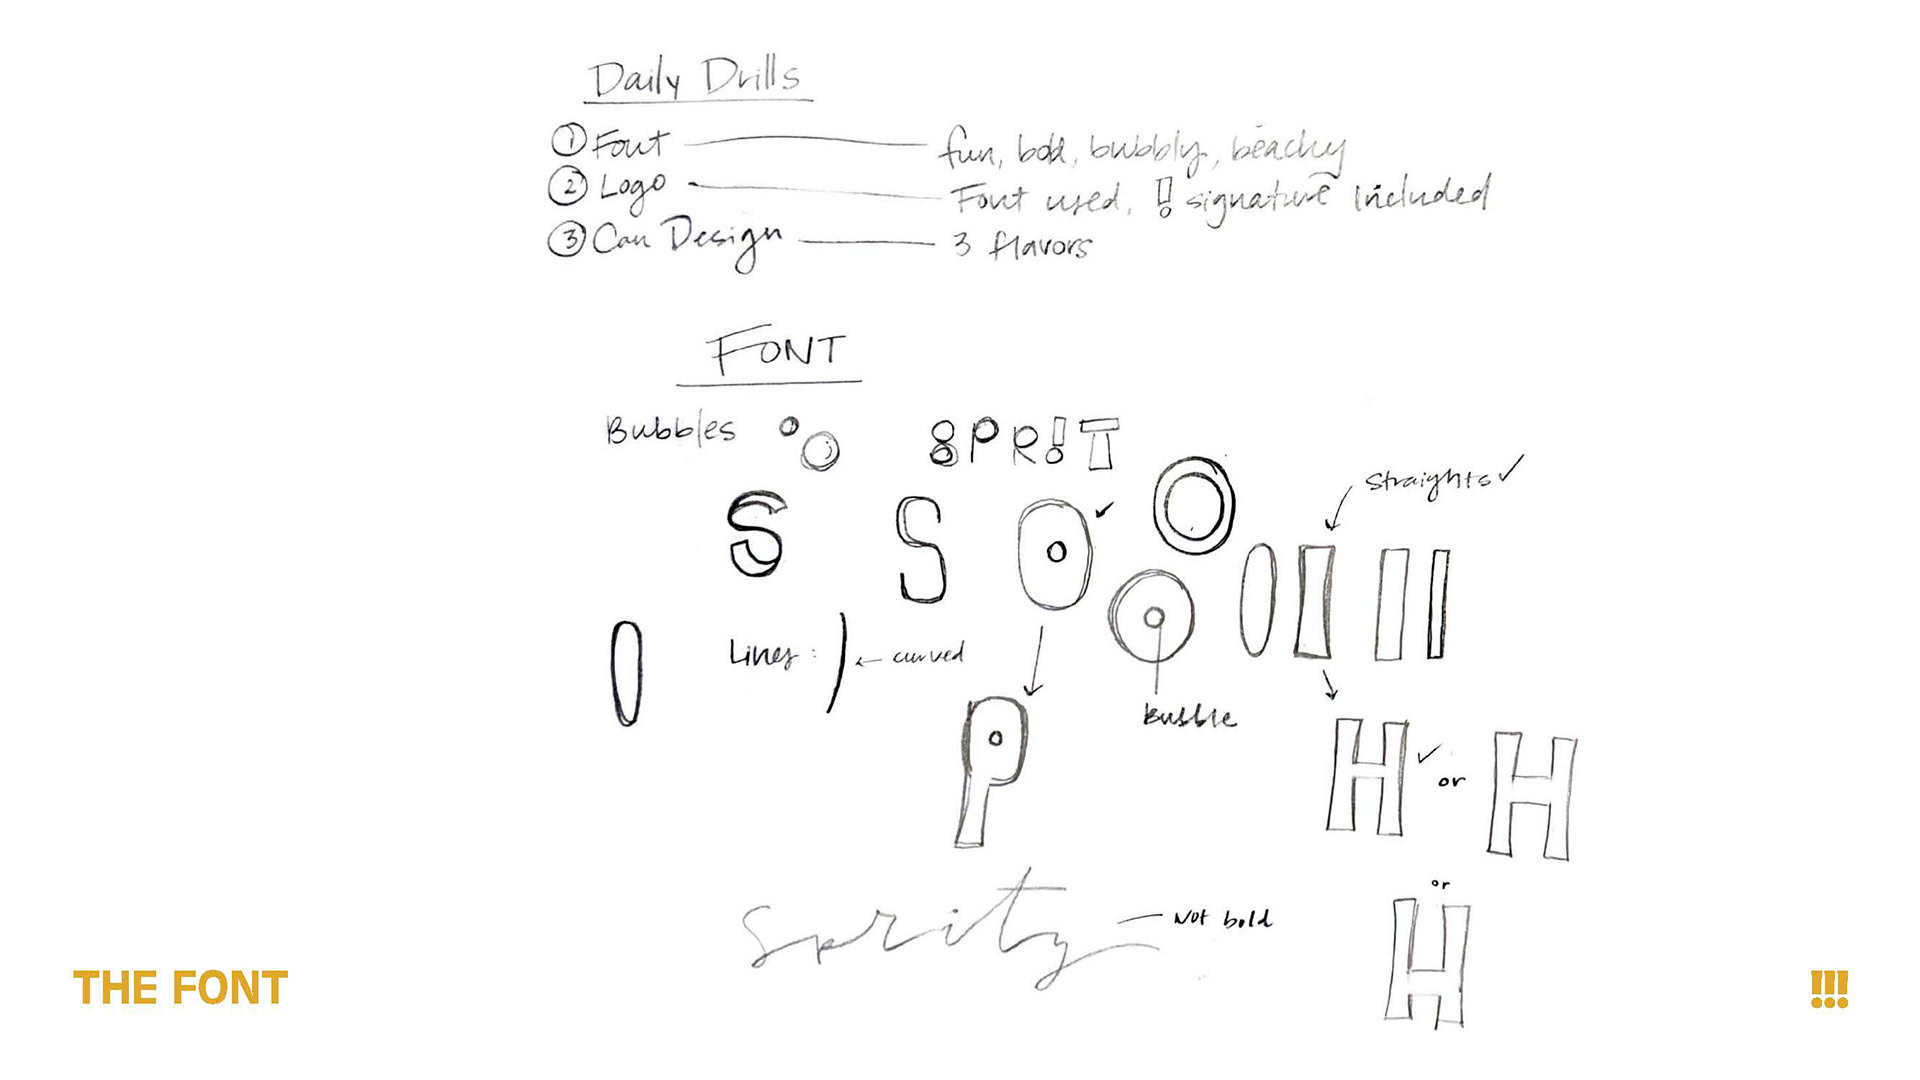 Daily Drills
① Font — fun, bold, bubbly, beachy
② Logo — Font used, ! signature Included
③ Can Design — 3 flavors
FONT
Bubbles
SPR!T
Straights ✓
S S O ✓ O
Lines: ← curved
P
Bubble
H ✓ or H
or
H
Sprity — Not bold
THE FONT
!!!